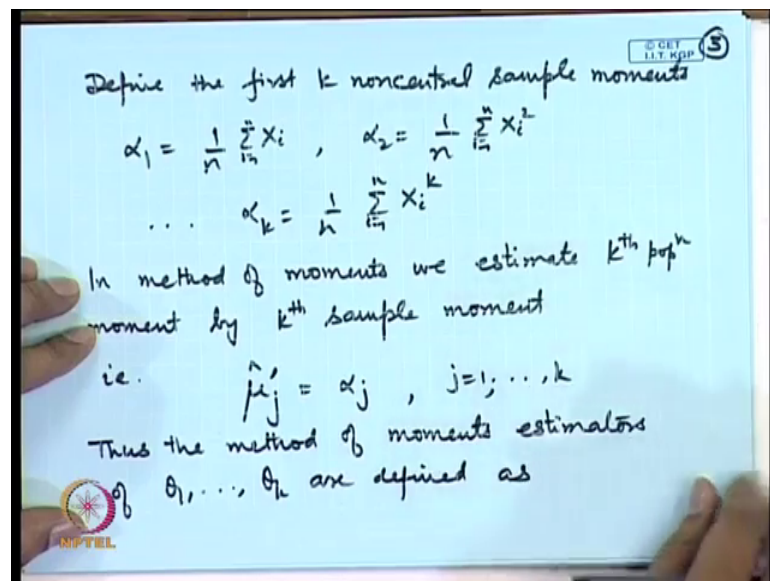 © CET
I.I.T. KGP
5
Define the first k noncentral sample moments
α₁ = 1/n Σᵢ₌₁ⁿ Xᵢ , α₂ = 1/n Σᵢ₌₁ⁿ Xᵢ²
... αₖ = 1/n Σᵢ₌₁ⁿ Xᵢᵏ
In method of moments we estimate kᵗʰ popⁿ
moment by kᵗʰ sample moment
ie. μ̂'ⱼ = αⱼ , j=1, ..., k
Thus the method of moments estimators
of θ₁, ..., θₖ are defined as
NPTEL